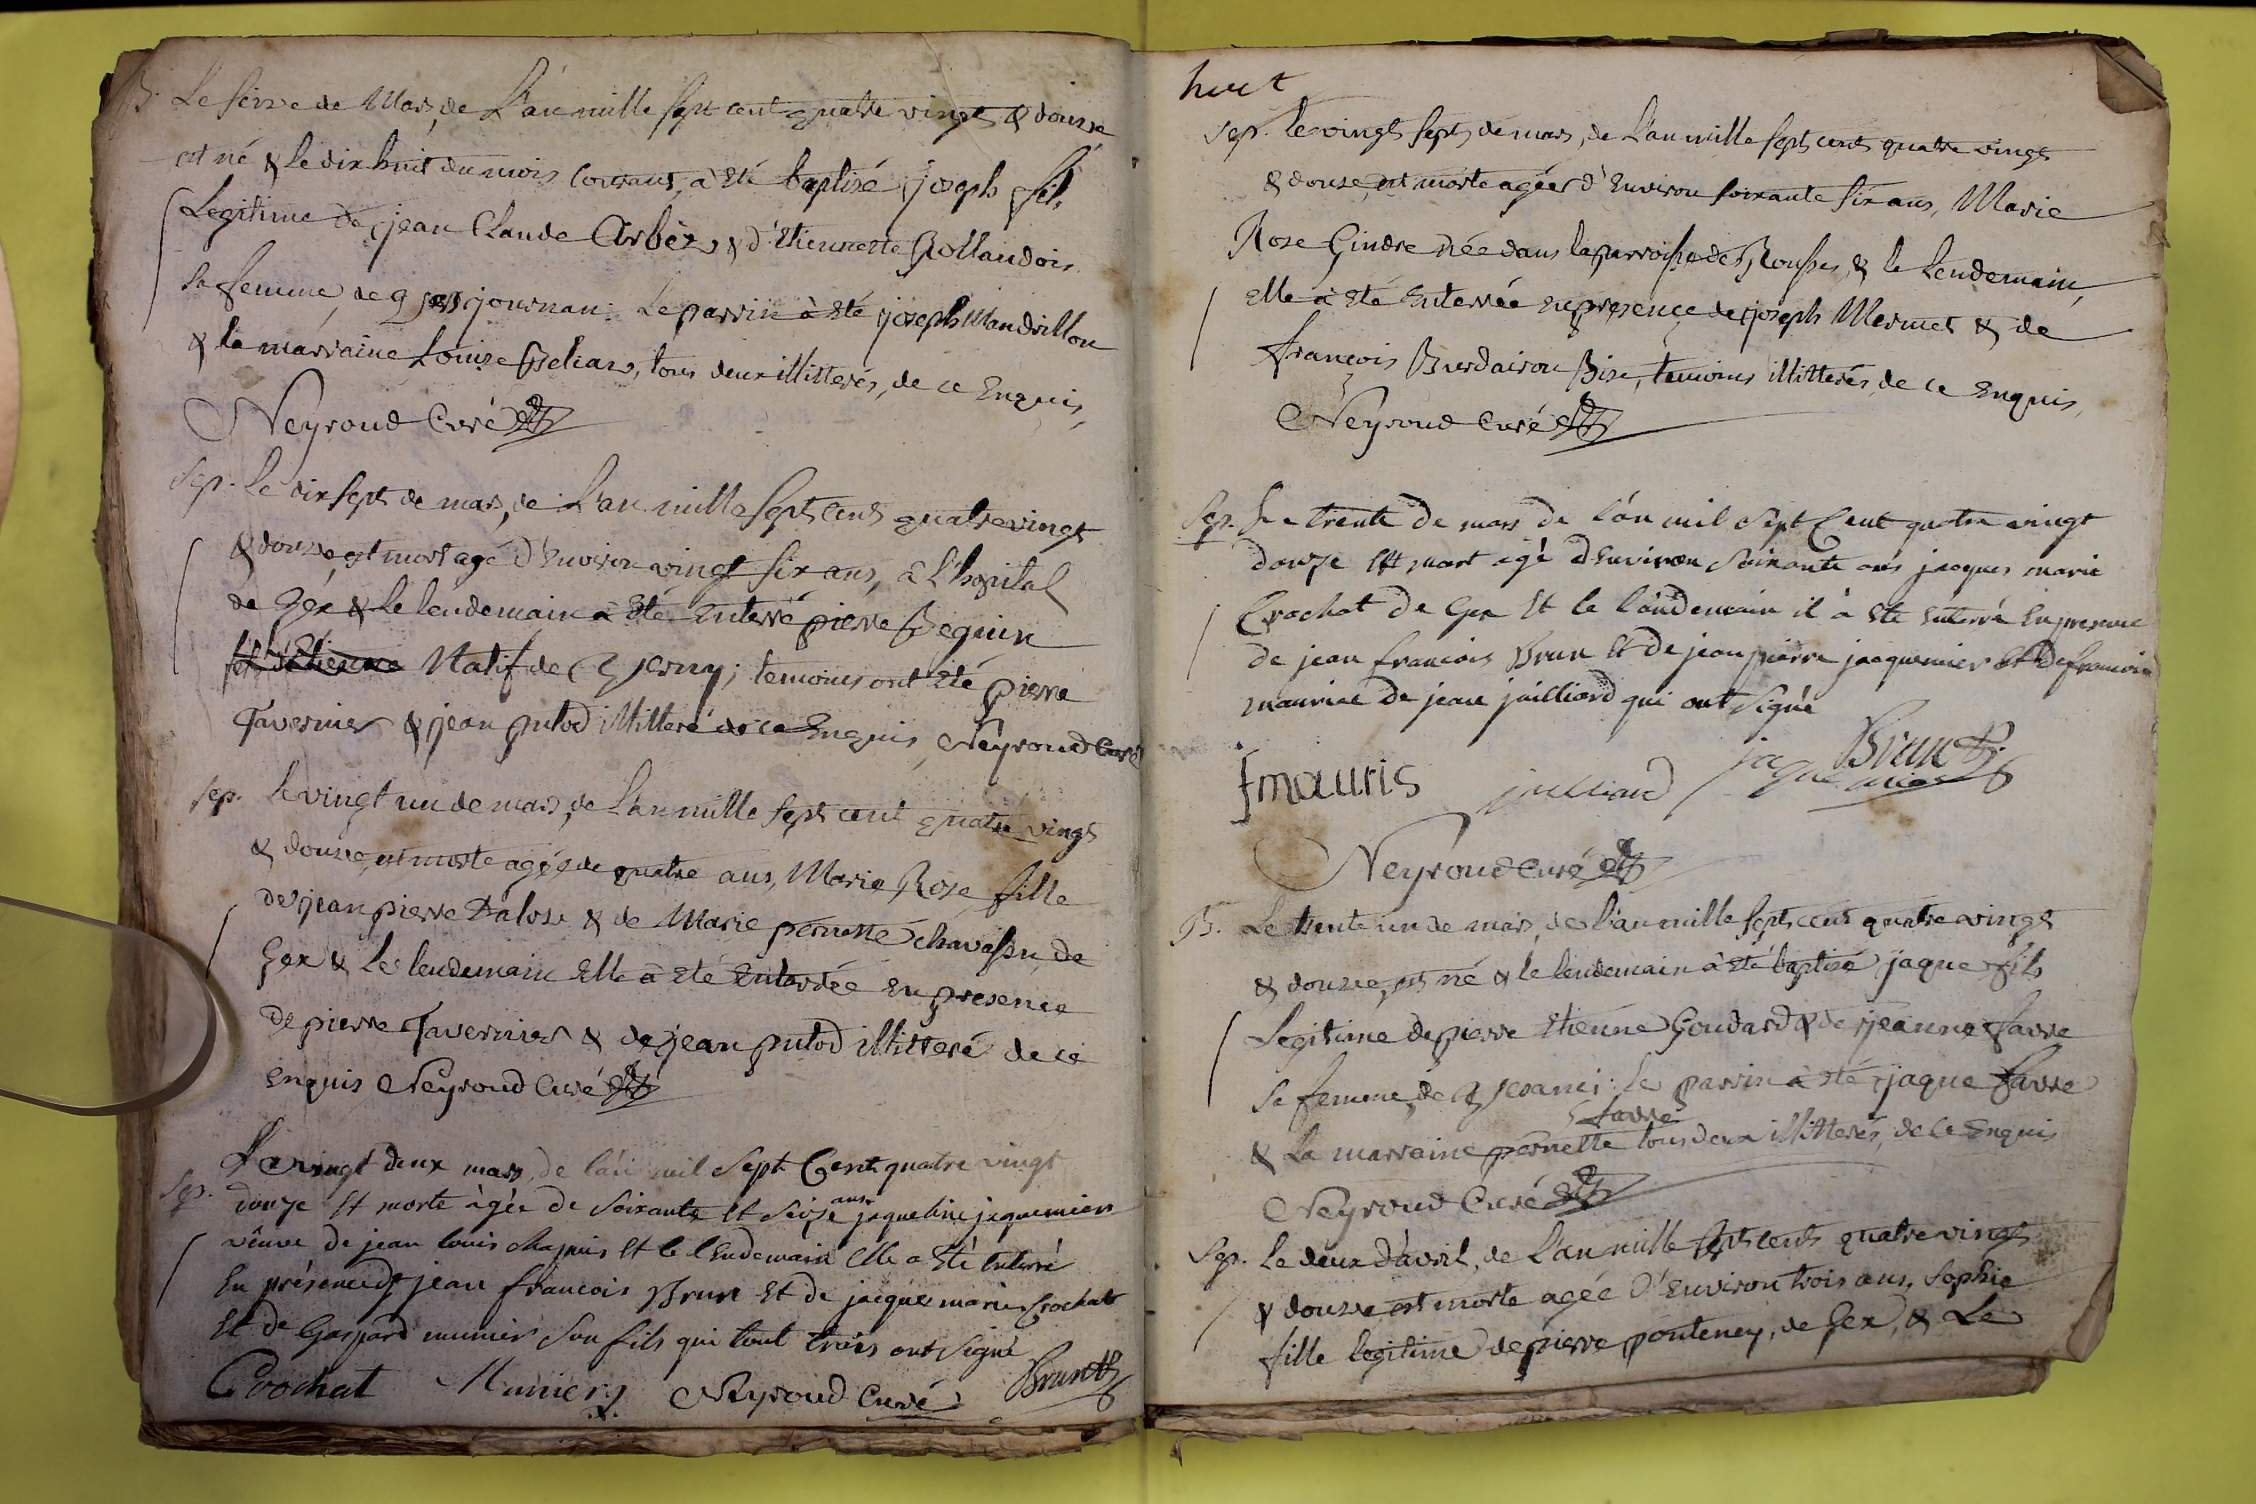 B. Le seize de Mars, de L'an mille sept cent quatre vingt & douze
est né & le dix huit du mois courant, à été baptisé joseph fils
Legitime de jean Claude Arbèz & d'Etiennette Rollandois
sa femme, de journan: Le parrin à été joseph Mandrillon
& la marraine Louise Pelias, tous deux illitterés, de ce Enquis,
Neyroud Curé
Sep. Le dix sept de mars, de L'an mille sept cent quatre vingt
& douze, est mort agé d'Environ vingt six ans, à L'hopital
de Gex & Le lendemain à Eté Enterré pierre Beguin
fils d'Etienne Natif de ; temoins ont Eté pierre
Tavernier & jean putod illitteré de ce Enquis, Neyroud Curé
sep. le vingt un de mars, de L'an mille sept cent quatre vingt
& douze, est morte agée de quatre ans, Marie Rose fille
de jean pierre Dalose & de Marie pernette chavassu, de
Gex & Le lendemain Elle à Eté Enterrée En presence
De pierre Tavernier & de jean putod illitteré de ce
Enquis Neyroud Curé
Le vingt deux mars, de l'an mil Sept Cent quatre vingt
Sep. douze Et morte àgée de Soixante Et Seize ans jaqueline jaquemier
vëuve de jean louis chapuis Et le lEndemain Elle a Eté Enterré
En présence de jean francois Brun Et de jacques marie Crochat
Et de Gaspard munier Son fils qui tout trois ont Signé
Crochat Munier Neyroud Curé Brun
huit
Sep. le vingt sept de mars, de L'an mille sept cent quatre vingt
& douze, est morte agée d'Environ soixante six ans, Marie
Rose Gindre née dans la parroisse de Rousses, & le Lendemain,
elle à Eté Enterrée en presence de joseph Mermet & de
françois Burdairon Bise, temoins illitterés, de ce Enquis,
Neyroud Curé
Sep. Le trente De mars de l'ân mil Sept Cent quatre vingt
Douze Est mort agé dEnviron Soixante ans jacques marie
Crochat De Gex Et le lândemain il à Ete Enterré En presence
de jean francois Brun Et De jean pierre jacquemier Et De francois
mauriae De jean juilliard qui ont Signé
fmauris juilliard jaquemier Brun
Neyroud Curé
B. Le trente un de mars, de L'an mille sept cent quatre vingt
& douze, est né & le lendemain à Eté baptisé jaque fils
Legitime de pierre Etienne Goudard & de jeanne favre
sa femme, de : Le parrin à Eté jaque favre
favre
& La marraine pernette tous deux illitterés, de ce Enquis
Neyroud Curé
Sep. Le deux d'avril, de L'an mille sept cent quatre vingt
& douze est morte agée d'Environ trois ans, Sophie
fille legitime de pierre ponteney, de Gex, & Le